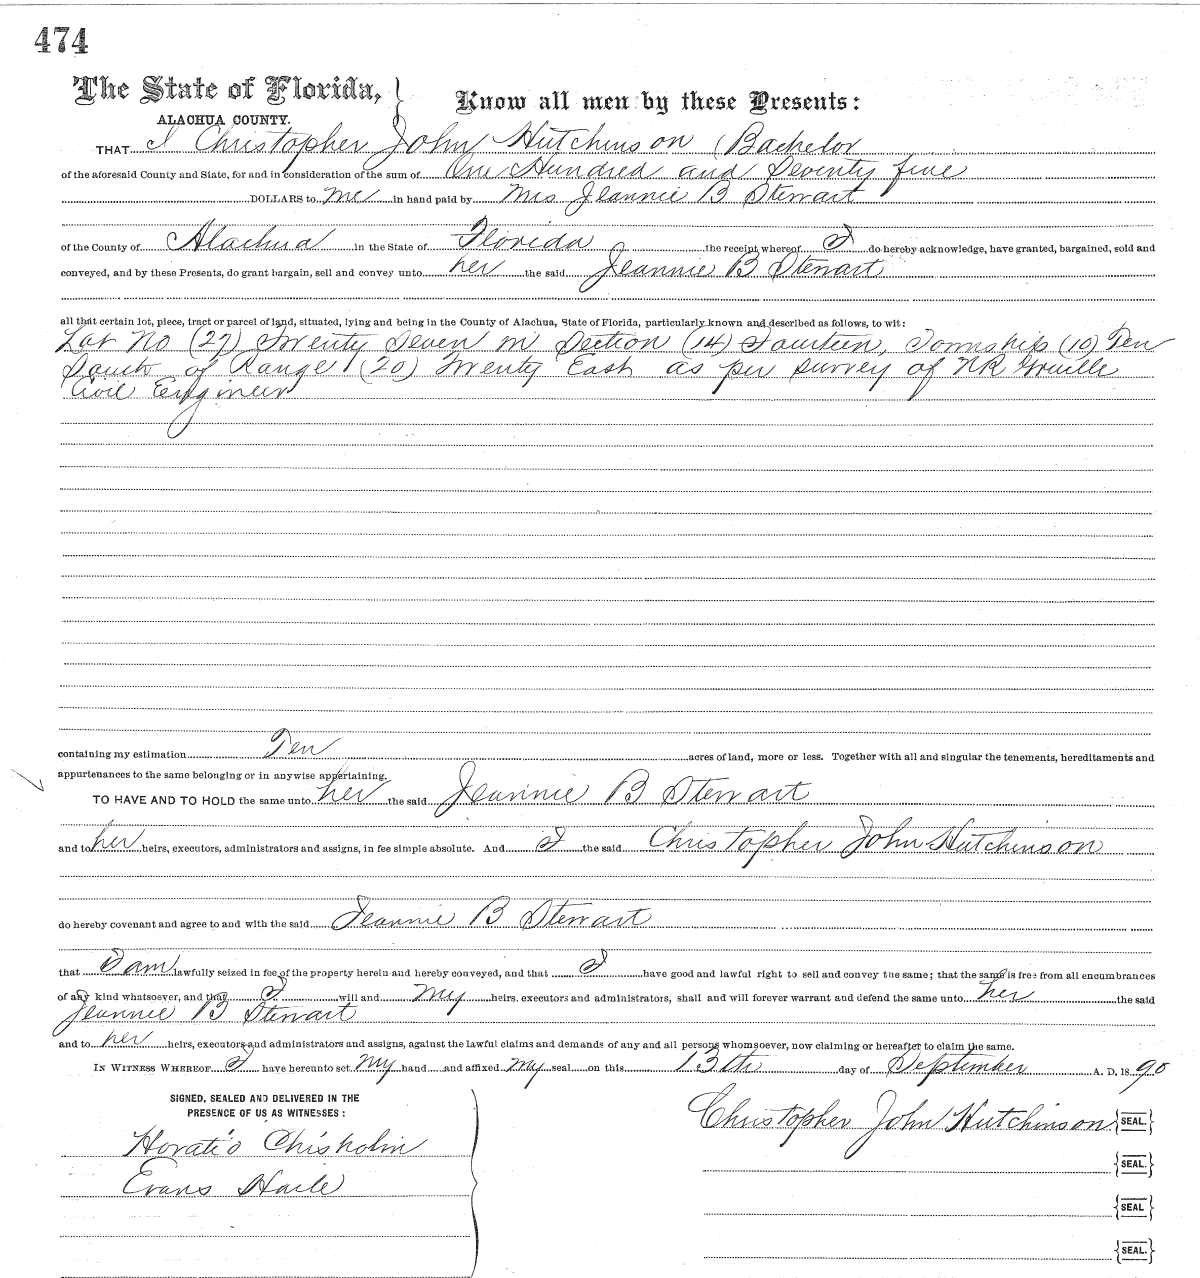 474
The State of Florida,
ALACHUA COUNTY.
Know all men by these Presents:
THAT I Christopher John Hutchinson (Bachelor
of the aforesaid County and State, for and in consideration of the sum of One Hundred and Seventy five
DOLLARS to me in hand paid by Mrs Jeannie B Stewart
of the County of Alachua in the State of Florida the receipt whereof I do hereby acknowledge, have granted, bargained, sold and
conveyed, and by these Presents, do grant bargain, sell and convey unto her the said Jeannie B Stewart
all that certain lot, piece, tract or parcel of land, situated, lying and being in the County of Alachua, State of Florida, particularly known and described as follows, to wit:
Lot No (27) Twenty Seven in Section (14) Fourteen, Township (10) Ten
South of Range (20) Twenty East as per survey of NR
Civil Engineer
containing my estimation Ten acres of land, more or less. Together with all and singular the tenements, hereditaments and
appurtenances to the same belonging or in anywise appertaining.
TO HAVE AND TO HOLD the same unto her the said Jeannie B Stewart
and to her heirs, executors, administrators and assigns, in fee simple absolute. And I the said Christopher John Hutchinson
do hereby covenant and agree to and with the said Jeannie B Stewart
that I am lawfully seized in fee of the property herein and hereby conveyed, and that I have good and lawful right to sell and convey the same; that the same is free from all encumbrances
of any kind whatsoever, and that I will and my heirs, executors and administrators, shall and will forever warrant and defend the same unto her the said
Jeannie B Stewart
and to her heirs, executors and administrators and assigns, against the lawful claims and demands of any and all persons whomsoever, now claiming or hereafter to claim the same.
IN WITNESS WHEREOF I have hereunto set my hand and affixed my seal on this 13th day of September A. D. 1890
SIGNED, SEALED AND DELIVERED IN THE
PRESENCE OF US AS WITNESSES:
Christopher John Hutchinson {SEAL.}
Horatio Chisholm
{SEAL.}
Evans Haile
{SEAL}
{SEAL.}